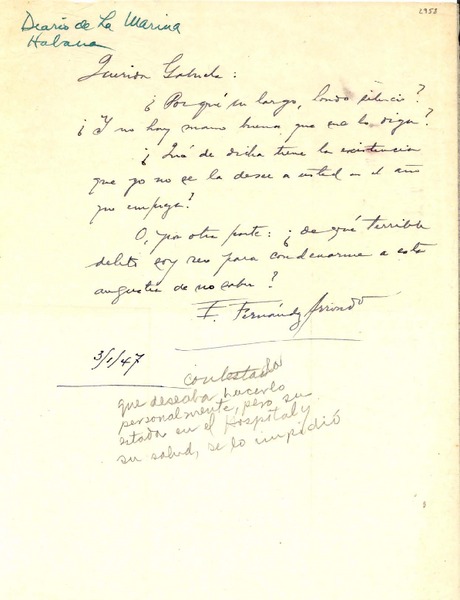 2953
Diario de La Marina
Habana
Querida Gabriela:
¿Por qué su largo, hondo silencio?
¿Y no hay mano buena que me lo diga?
¿Qué de dicha tiene la existencia
que yo no se la desee a usted en el año
que empieza?
O, por otra parte: ¿de qué terrible
delito soy reo para condenarme a esta
angustia de no saber?
F. Fernández Arrondo
3/1/47
contestada
que deseaba hacerlo
personalmente, pero su
estada en el Hospital y
su salud, se lo impidió